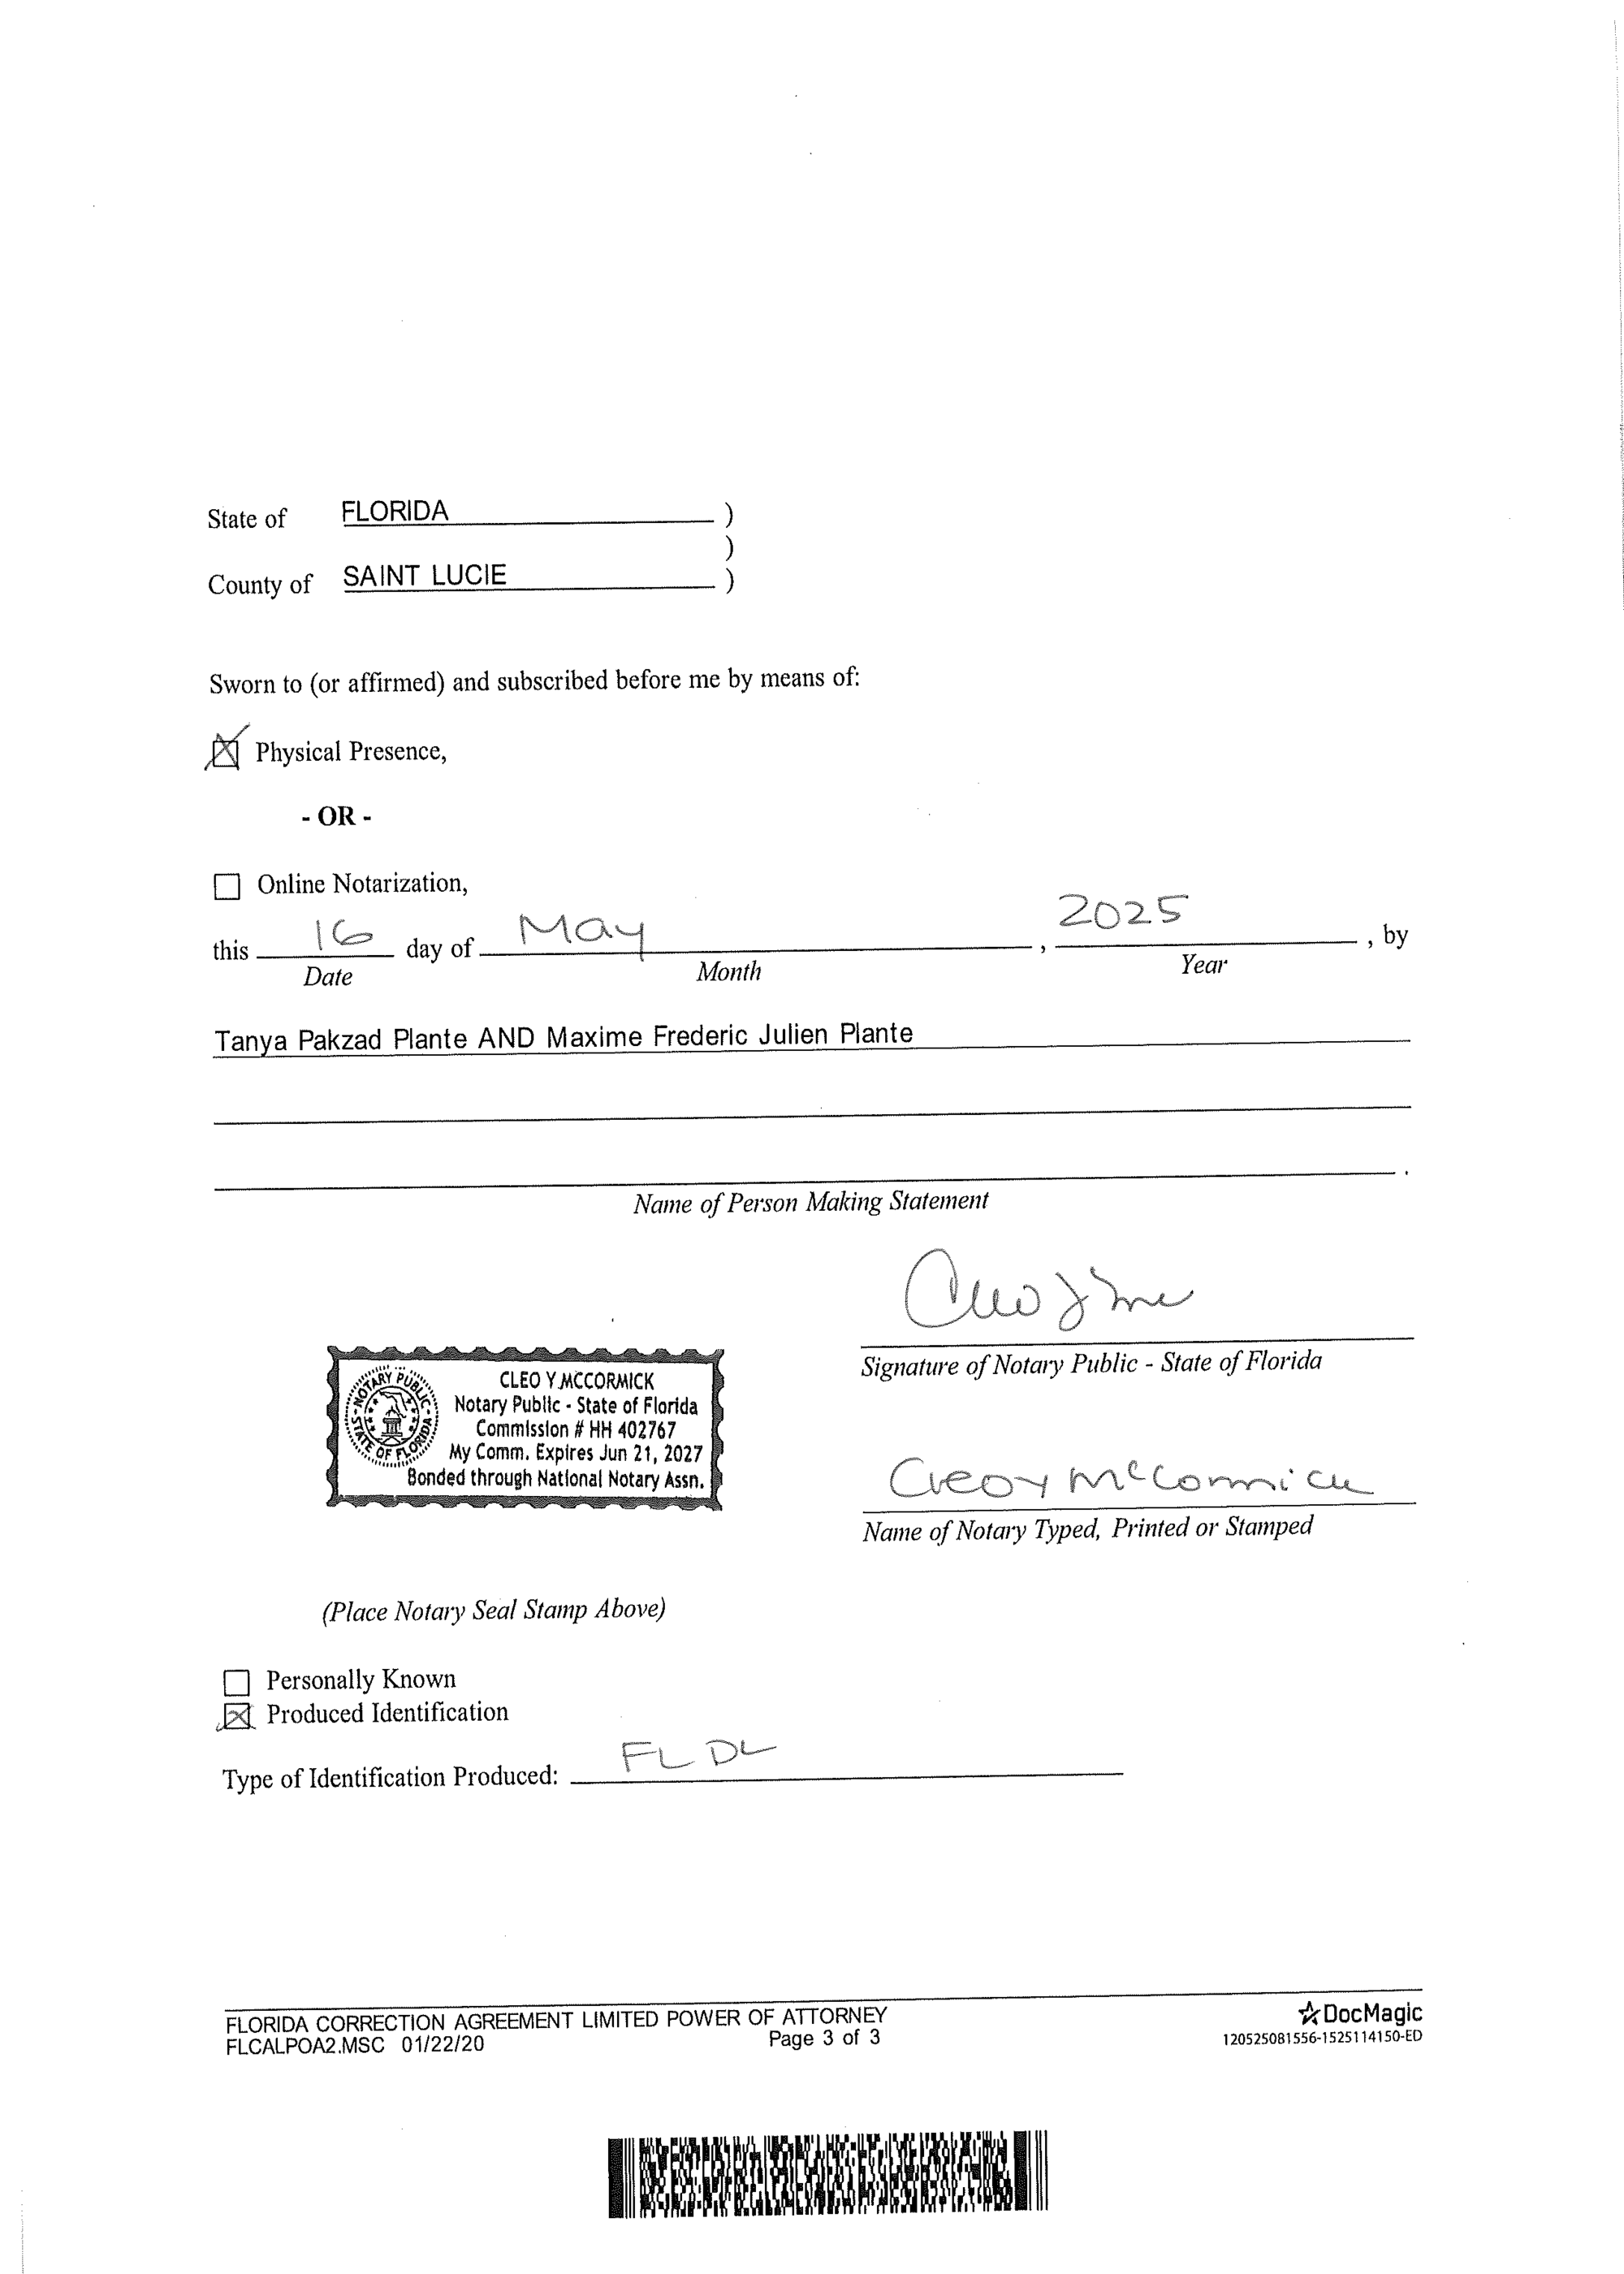 State of FLORIDA )
)
County of SAINT LUCIE )
Sworn to (or affirmed) and subscribed before me by means of:
Physical Presence,
- OR -
Online Notarization,
this 16 day of May , 2025 , by
Date Month Year
Tanya Pakzad Plante AND Maxime Frederic Julien Plante
.
Name of Person Making Statement
Signature of Notary Public - State of Florida
NOTARY PUBLIC
STATE OF FLORIDA
CLEO Y MCCORMICK
Notary Public - State of Florida
Commission # HH 402767
My Comm. Expires Jun 21, 2027
Bonded through National Notary Assn.
Cleo Y McCormick
Name of Notary Typed, Printed or Stamped
(Place Notary Seal Stamp Above)
Personally Known
Produced Identification
Type of Identification Produced: FL DL
FLORIDA CORRECTION AGREEMENT LIMITED POWER OF ATTORNEY
FLCALPOA2.MSC 01/22/20 Page 3 of 3
DocMagic
120525081556-1525114150-ED